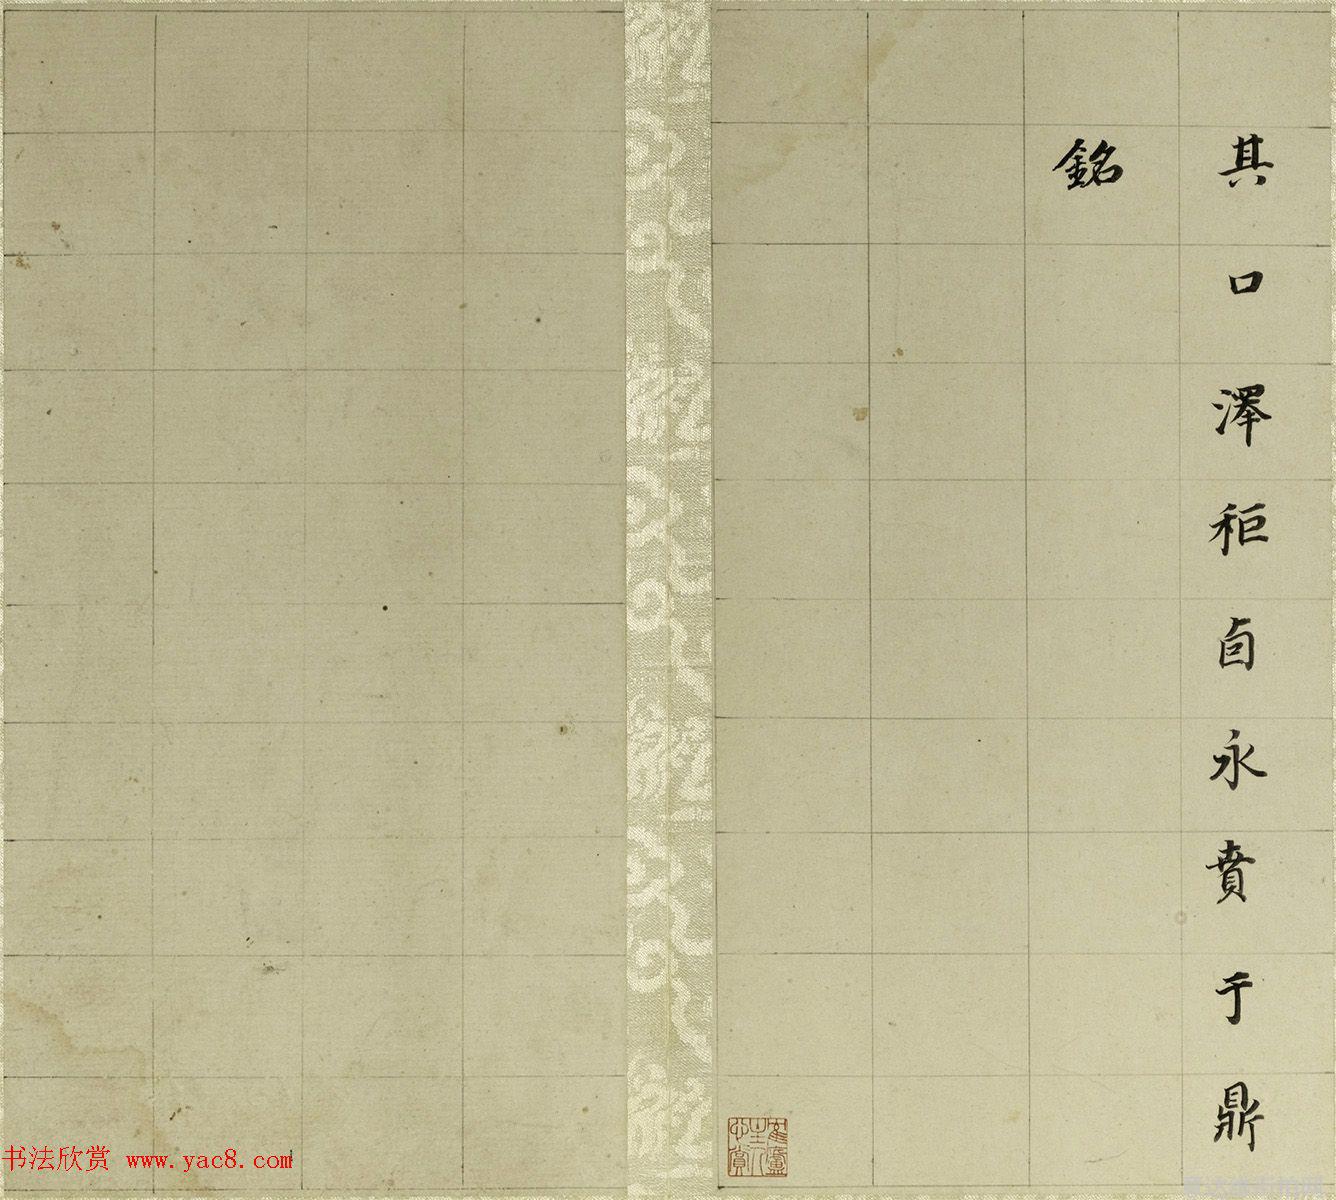 其口澤秬卣永賁于鼎
銘
书法欣赏 www.yac8.com